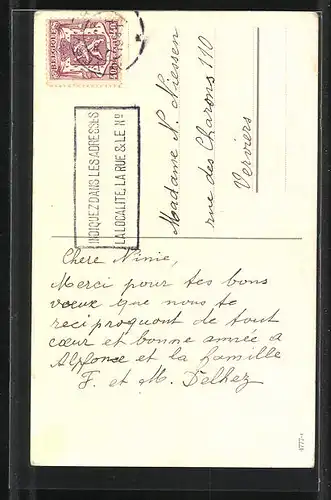 BELGIQUE
INDIQUEZ DANS LES ADRESSES
LA LOCALITE, LA RUE & LE No
Madame N. Niessen
rue des Charons 110
Verviers
Chere Ninie,
Merci pour tes bons
vœux que nous te
reciproquont de tout
cœur et bonne année a
Alfonce et la famille
F. et M. Delhez